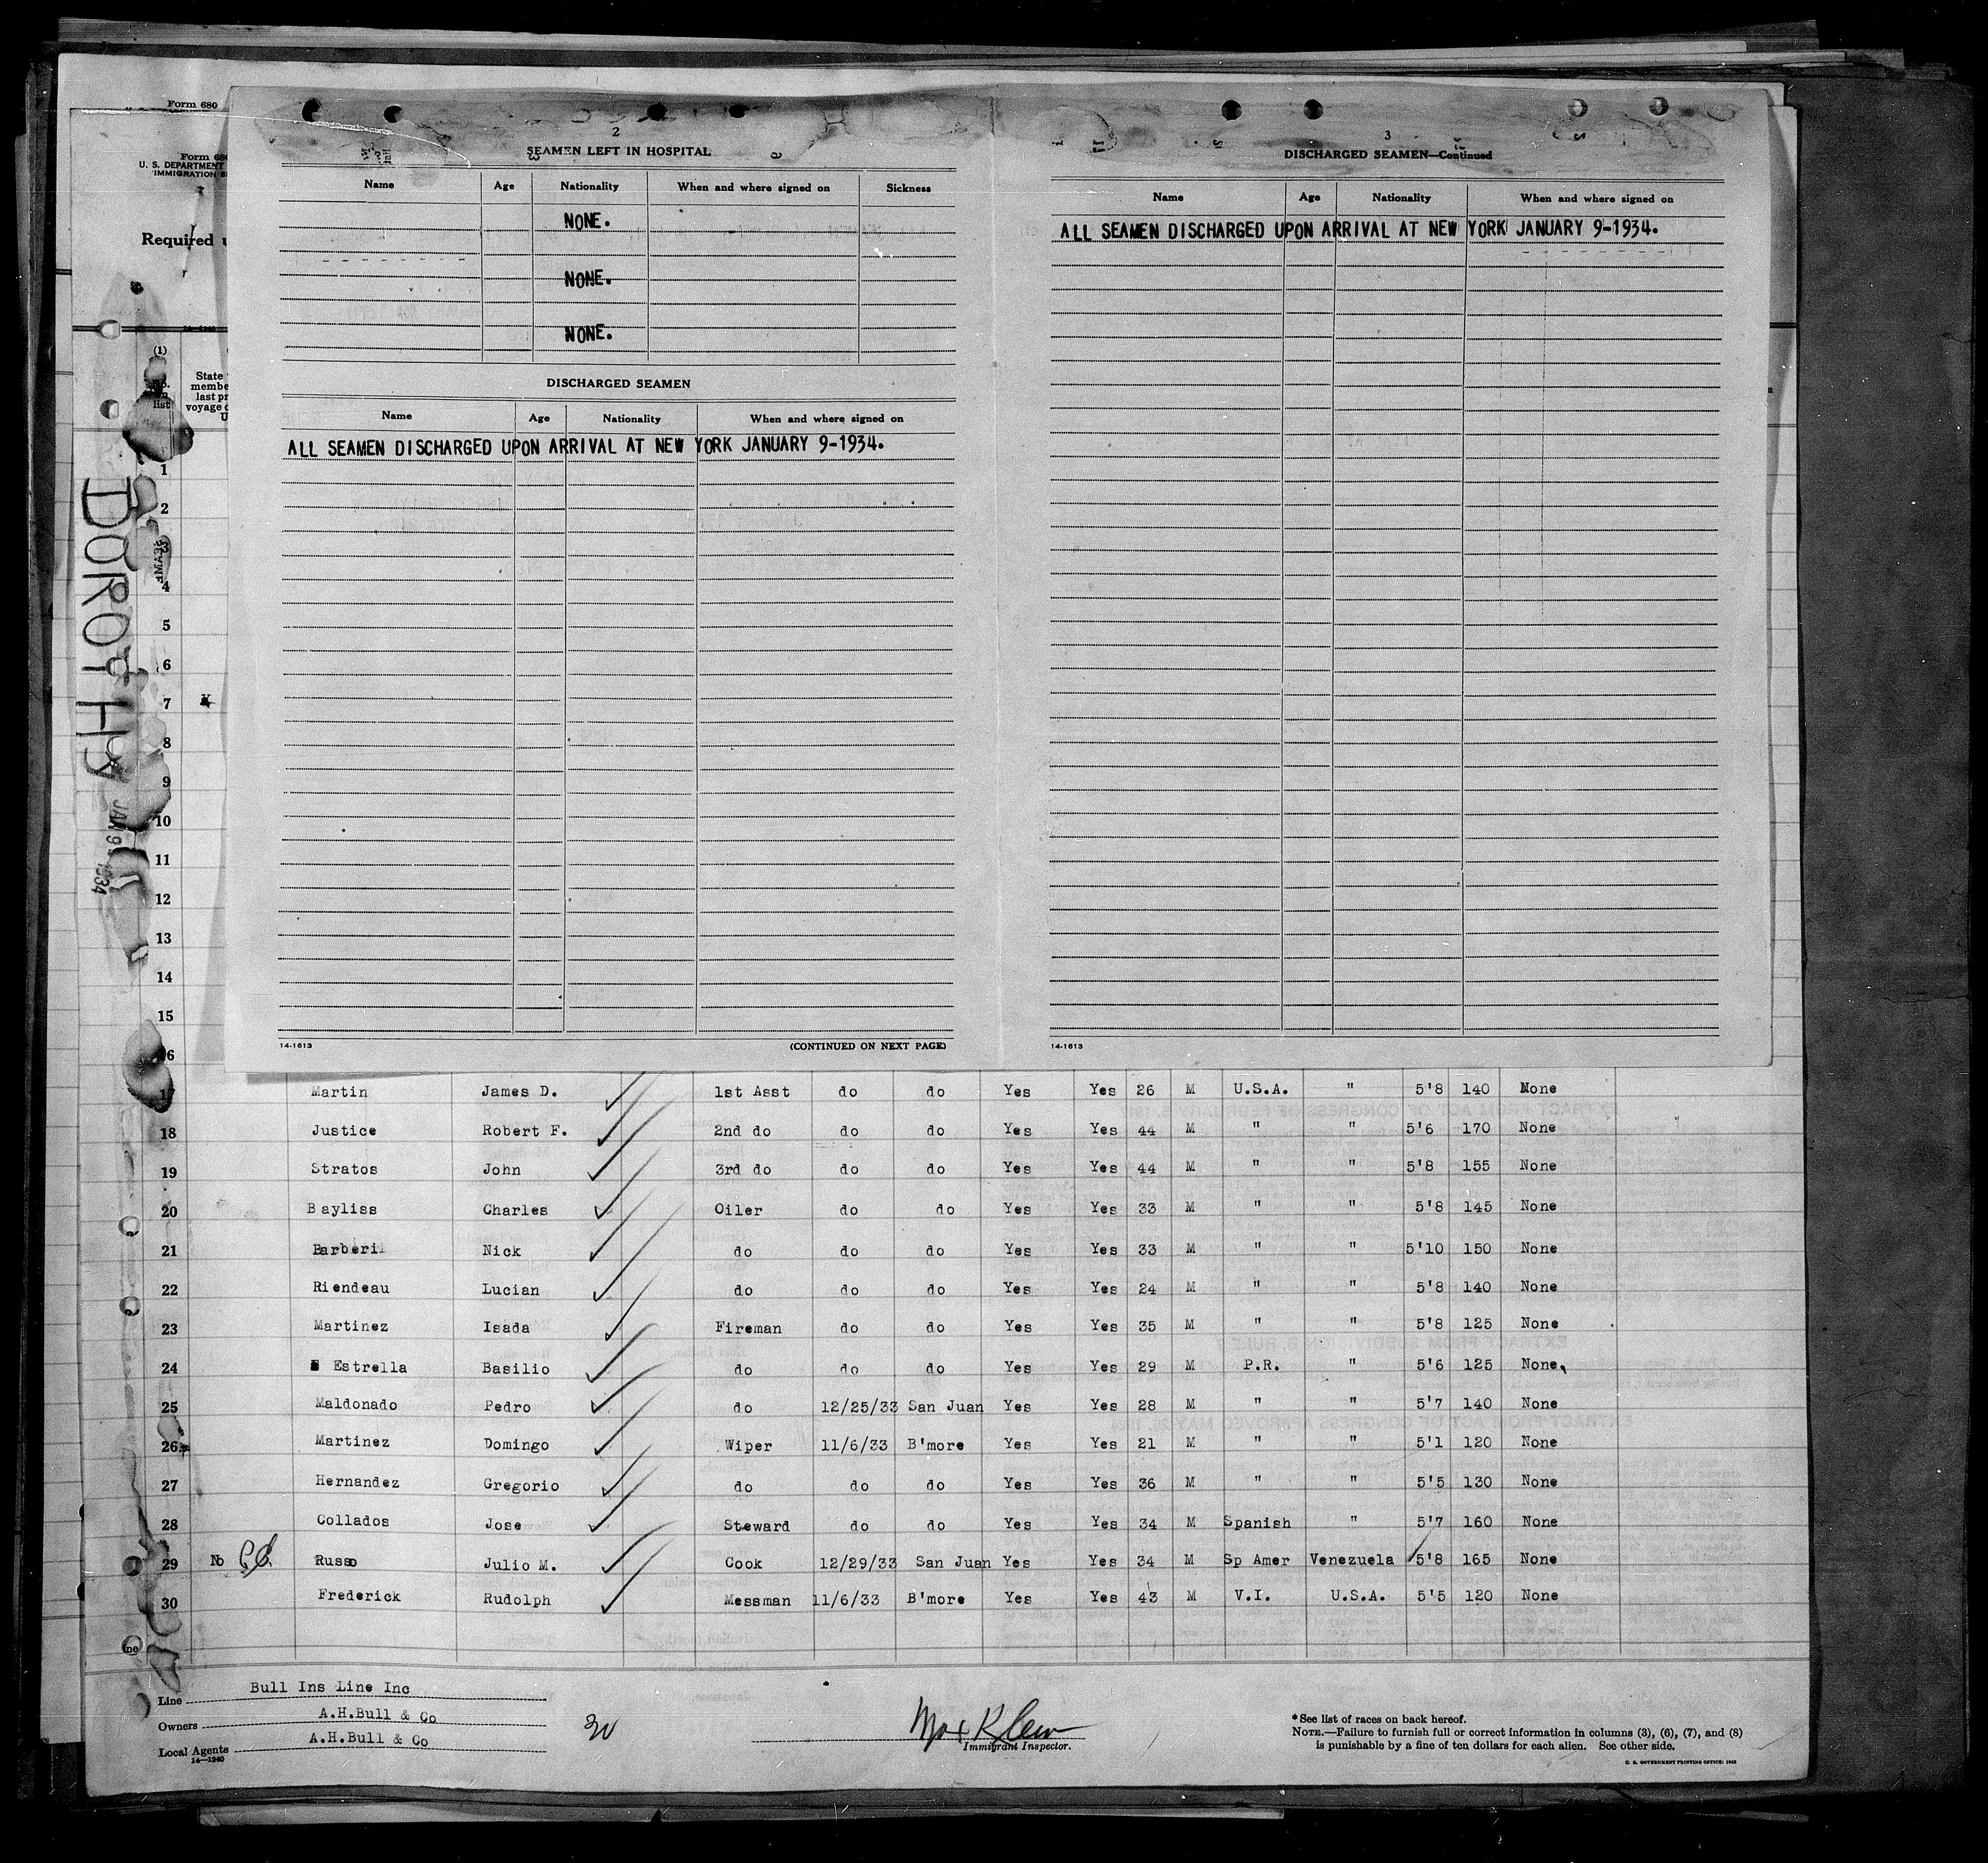 Form 680
Form 680
U. S. DEPARTMENT
IMMIGRATION
Required
14-1240
(1)
No.
list
State
membe
last pr
voyage
DOROTHY
JAN 9 1934
2
SEAMEN LEFT IN HOSPITAL
Name Age Nationality When and where signed on Sickness
NONE.
NONE.
NONE.
DISCHARGED SEAMEN
Name Age Nationality When and where signed on
ALL SEAMEN DISCHARGED UPON ARRIVAL AT NEW YORK JANUARY 9-1934.
14-1613 (CONTINUED ON NEXT PAGE)
3
DISCHARGED SEAMEN—Continued
Name Age Nationality When and where signed on
ALL SEAMEN DISCHARGED UPON ARRIVAL AT NEW YORK JANUARY 9-1934.
14-1613
1
2
3
4
5
6
7
8
9
10
11
12
13
14
15
16
17 Martin James D. 1st Asst do do Yes Yes 26 M U.S.A. " 5'8 140 None
18 Justice Robert F. 2nd do do do Yes Yes 44 M " " 5'6 170 None
19 Stratos John 3rd do do do Yes Yes 44 M " " 5'8 155 None
20 Bayliss Charles Oiler do do Yes Yes 33 M " " 5'8 145 None
21 Barberi Nick do do do Yes Yes 33 M " " 5'10 150 None
22 Riendeau Lucian do do do Yes Yes 24 M " " 5'8 140 None
23 Martinez Isada Fireman do do Yes Yes 35 M " " 5'8 125 None
24 Estrella Basilio do do do Yes Yes 29 M P.R. " 5'6 125 None
25 Maldonado Pedro do 12/25/33 San Juan Yes Yes 28 M " " 5'7 140 None
26 Martinez Domingo Wiper 11/6/33 B'more Yes Yes 21 M " " 5'1 120 None
27 Hernandez Gregorio do do do Yes Yes 36 M " " 5'5 130 None
28 Collados Jose Steward do do Yes Yes 34 M Spanish " 5'7 160 None
29 No Russo Julio M. Cook 12/29/33 San Juan Yes Yes 34 M Sp Amer Venezuela 5'8 165 None
30 Frederick Rudolph Messman 11/6/33 B'more Yes Yes 43 M V.I. U.S.A. 5'5 120 None
Line Bull Ins Line Inc
Owners A.H.Bull & Co
Local Agents A.H.Bull & Co
14-1240
30
Max Klein
Immigrant Inspector.
*See list of races on back hereof.
NOTE.—Failure to furnish full or correct information in columns (3), (6), (7), and (8)
is punishable by a fine of ten dollars for each alien. See other side.
U. S. GOVERNMENT PRINTING OFFICE: 1932